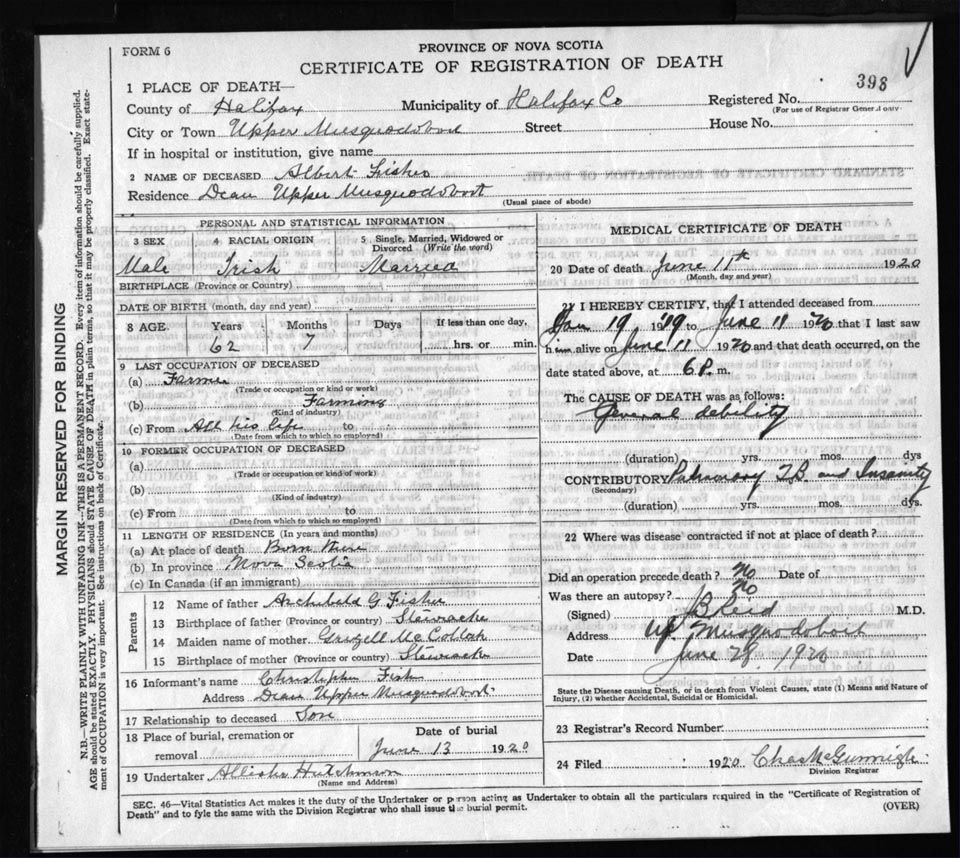 FORM 6
PROVINCE OF NOVA SCOTIA
CERTIFICATE OF REGISTRATION OF DEATH
1 PLACE OF DEATH—
398
County of Halifax Municipality of Halifax Co Registered No.
(For use of Registrar General only
City or Town Upper Musquodoboit Street House No.
If in hospital or institution, give name
2 NAME OF DECEASED Albert Fisher
Residence Dean Upper Musquodoboit
(Usual place of abode)
MARGIN RESERVED FOR BINDING
N.B.—WRITE PLAINLY WITH UNFADING INK—THIS IS A PERMANENT RECORD. Every item of information should be carefully supplied.
AGE should be stated EXACTLY. PHYSICIANS should STATE CAUSE OF DEATH in plain terms, so that it may be properly classified. Exact state-
ment of OCCUPATION is very important. See instructions on back of Certificate.
PERSONAL AND STATISTICAL INFORMATION
3 SEX 4 RACIAL ORIGIN 5 Single, Married, Widowed or Divorced (Write the word)
Male Irish Married
BIRTHPLACE (Province or Country)
DATE OF BIRTH (month, day and year)
8 AGE. Years Months Days If less than one day,
62 7 hrs. or min.
9 LAST OCCUPATION OF DECEASED
(a) Farmer
(Trade or occupation or kind or work)
(b) Farming
(Kind of industry)
(c) From All his life to
(Date from which to which so employed)
10 FORMER OCCUPATION OF DECEASED
(a)
(Trade or occupation or kind of work)
(b)
(Kind of industry)
(c) From to
(Date from which to which so employed)
11 LENGTH OF RESIDENCE (In years and months)
(a) At place of death Born here
(b) In province Nova Scotia
(c) In Canada (if an immigrant)
Parents
12 Name of father Archibald G Fisher
13 Birthplace of father (Province or country) Stewiacke
14 Maiden name of mother
15 Birthplace of mother (Province or country) Stewiacke
16 Informant's name Christopher Fisher
Address Dean Upper Musquodoboit
17 Relationship to deceased Son
18 Place of burial, cremation or removal Date of burial
June 13 1920
19 Undertaker Hutchinson
(Name and Address)
MEDICAL CERTIFICATE OF DEATH
20 Date of death June 11th 1920
(Month, day and year)
21 I HEREBY CERTIFY, that I attended deceased from
Jan 19 1919 to June 11 1920 that I last saw
him alive on June 11 1920 and that death occurred, on the
date stated above, at 6 P. m.
The CAUSE OF DEATH was as follows:
General debility
(duration) yrs. mos. dys
CONTRIBUTORY Pulmonary TB and Insanity
(Secondary)
(duration) yrs. mos. dys.
22 Where was disease contracted if not at place of death?
Did an operation precede death? No Date of
Was there an autopsy? No
(Signed) Reid M.D.
Address Up. Musquodoboit
Date June 28. 1920
State the Disease causing Death, or in death from Violent Causes, state (1) Means and Nature of
Injury, (2) whether Accidental, Suicidal or Homicidal.
23 Registrar's Record Number
24 Filed 1920 Chas
Division Registrar
SEC. 46—Vital Statistics Act makes it the duty of the Undertaker or person acting as Undertaker to obtain all the particulars required in the "Certificate of Registration of
Death" and to fyle the same with the Division Registrar who shall issue the burial permit.
(OVER)